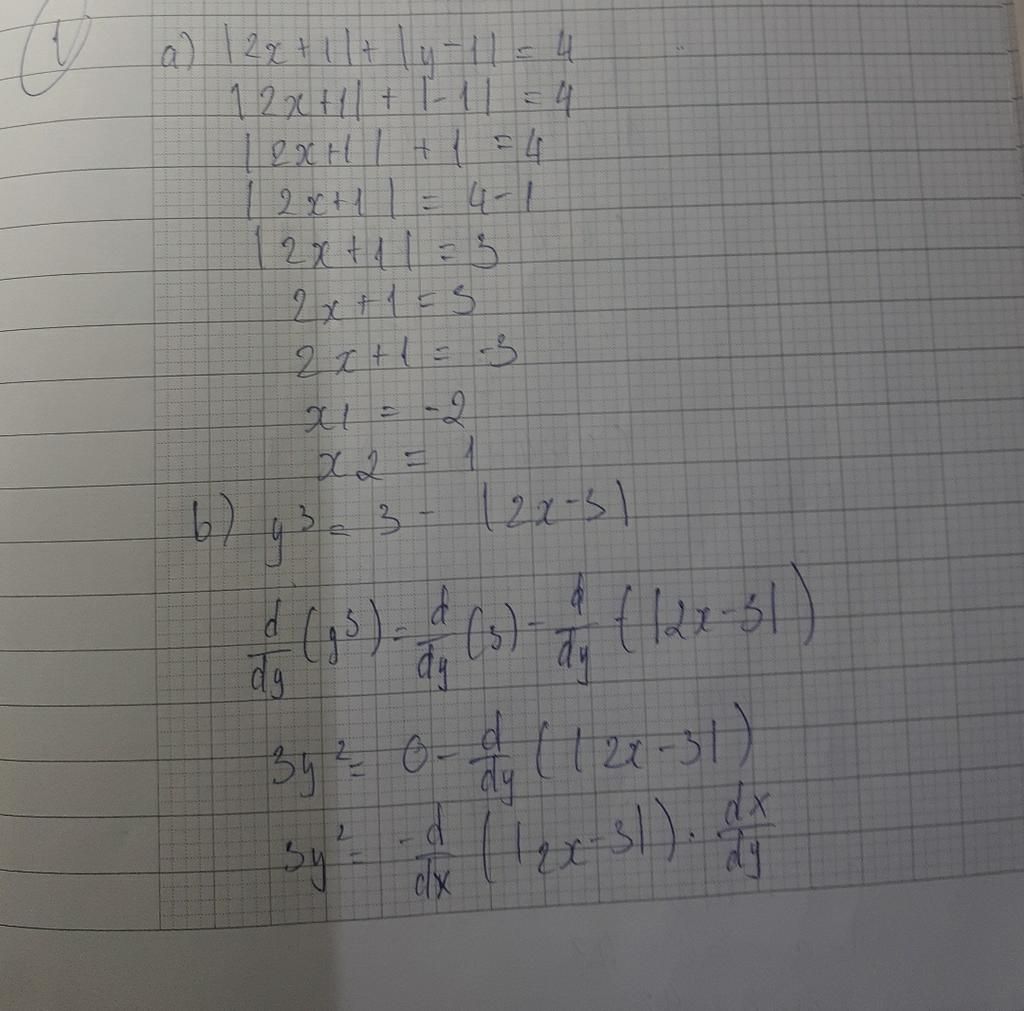 1) a) |2x+1| + |y-1| = 4
|2x+1| + |-1| = 4
|2x+1| + 1 = 4
|2x+1| = 4-1
|2x+1| = 3
2x+1 = 3
2x+1 = -3
x1 = -2
x2 = 1
b) y³ = 3 - |2x-3|
d/dy (y³) = d/dy (3) - d/dy (|2x-3|)
3y² = 0 - d/dy (|2x-3|)
3y² = -d/dx (|2x-3|) · dx/dy